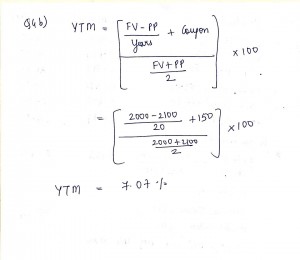 Q4b) YTM = [ FV - PP / Years + Coupon
FV + PP / 2 ] × 100
= [ 2000 - 2100 / 20 + 150
2000 + 2100 / 2 ] × 100
YTM = 7.07 %